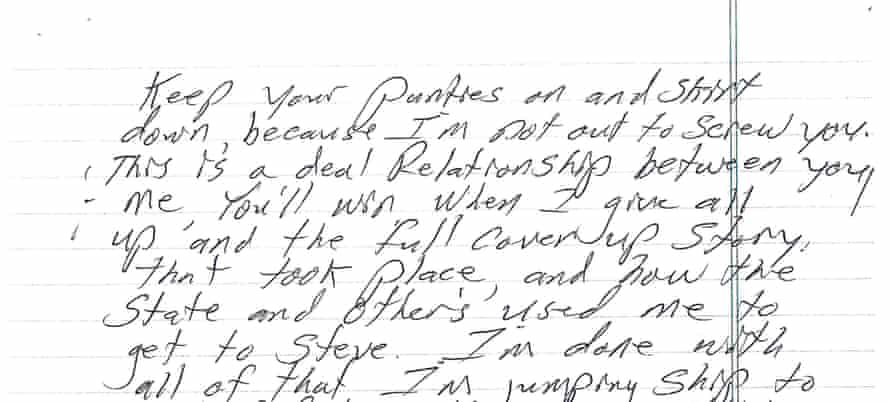 Keep your panties on and shirt
down, because I'm not out to screw you.
This is a deal Relationship between you,
me You'll win when I give all
up and the full cover up story,
that took place, and how the
State and other's used me to
get to Steve. I'm done with
all of that I'm jumping ship to